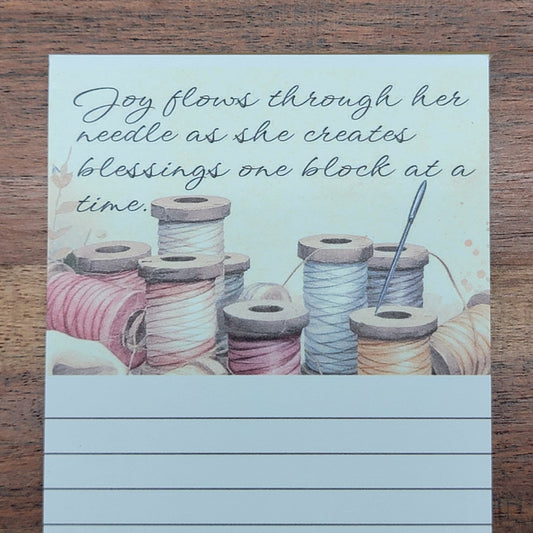 Joy flows through her
needle as she creates
blessings one block at a
time.